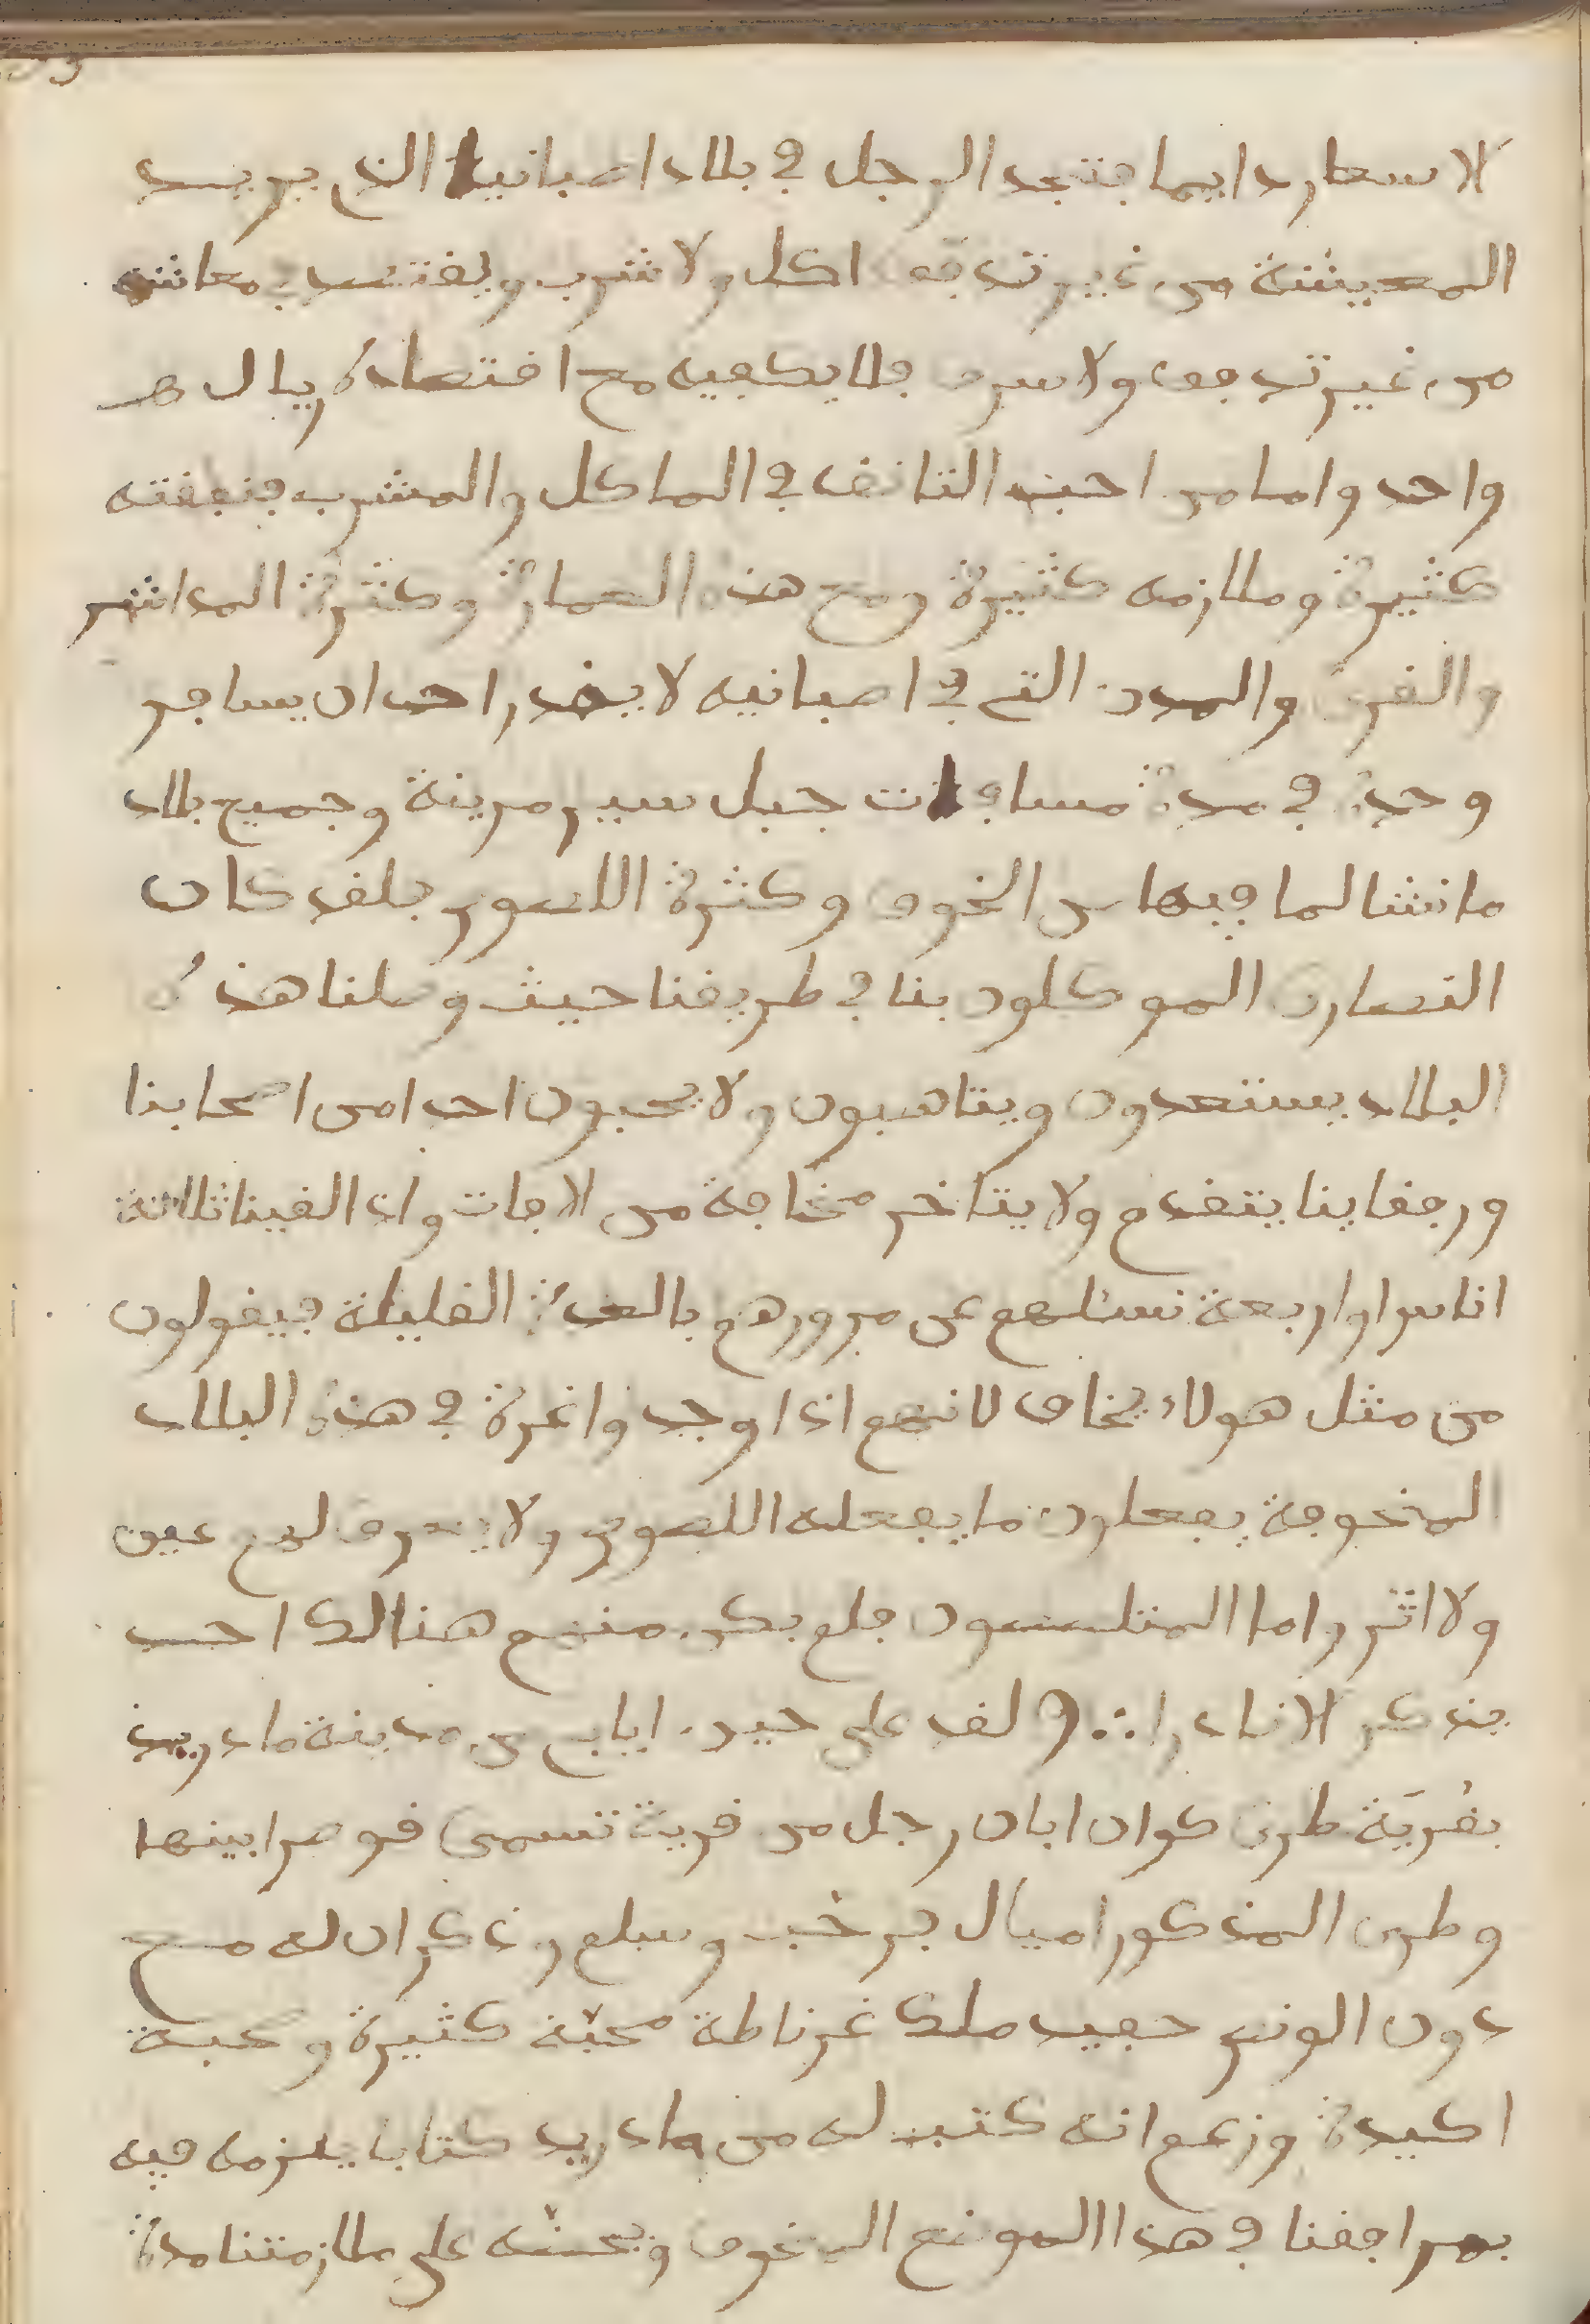 لاسعار دايما فتجد الرجل في بلاد اصبانيا الذي يريد
المعيشة من غير تدفق اكل ولا شرب ويقتصد معاشه
من غير تدفق ولا سرف فلا يكفيه مع اقتصاده ريال
واحد واما من احب التانق في الماكل والمشرب فنفقته
كثيرة وملازمه كثيرة ومع هذه العمارة وكثرة المداشر
والقرى والمدن التي في اصبانيه لا يقدر احد ان يسافر
وحده في مدة مسافات جبل سيرمرينة وجميع بلاد
مانشا لما فيها من الخوف وكثرة اللصوص فلقد كان
النصارى الموكلون بنا في طريقنا حيث وصلنا هذه
البلاد يستعدون ويتاهبون ولا يحبون احدا من اصحابنا
ورفقاينا يتقدم ولا يتاخر مخافة من الافات واذا لقينا ثلاثة
اناس او اربعة نسئلهم عن مرورهم بالعدة القليلة فيقولون
من مثل هولاء يخاف لانهم اذا وجدوا غرة في هذه البلاد
المخوفة يفعلون ما يفعله اللصوص ولا يعرف لهم عين
ولا اثر واما المتلصصون فلم يكن منهم هنالك احد
يذكر الا نادرا ∴ ولقد على حين ايابي من مدينة مادريد
بقرية طرى كوان ابان رجل من قرية تسمى قوصرا بينها
وطرى المذكور اميال فرحب وسلم وذكر ان له مع
دون الونص حفيد ملك غرناطة محبة كثيرة وصحبة
اكيدة وزعم انه كتب له من مادريد كتابا يلزمه فيه
بمرافقنا في هذا الموضع المخوف ويحثه على ملازمتنا مدة